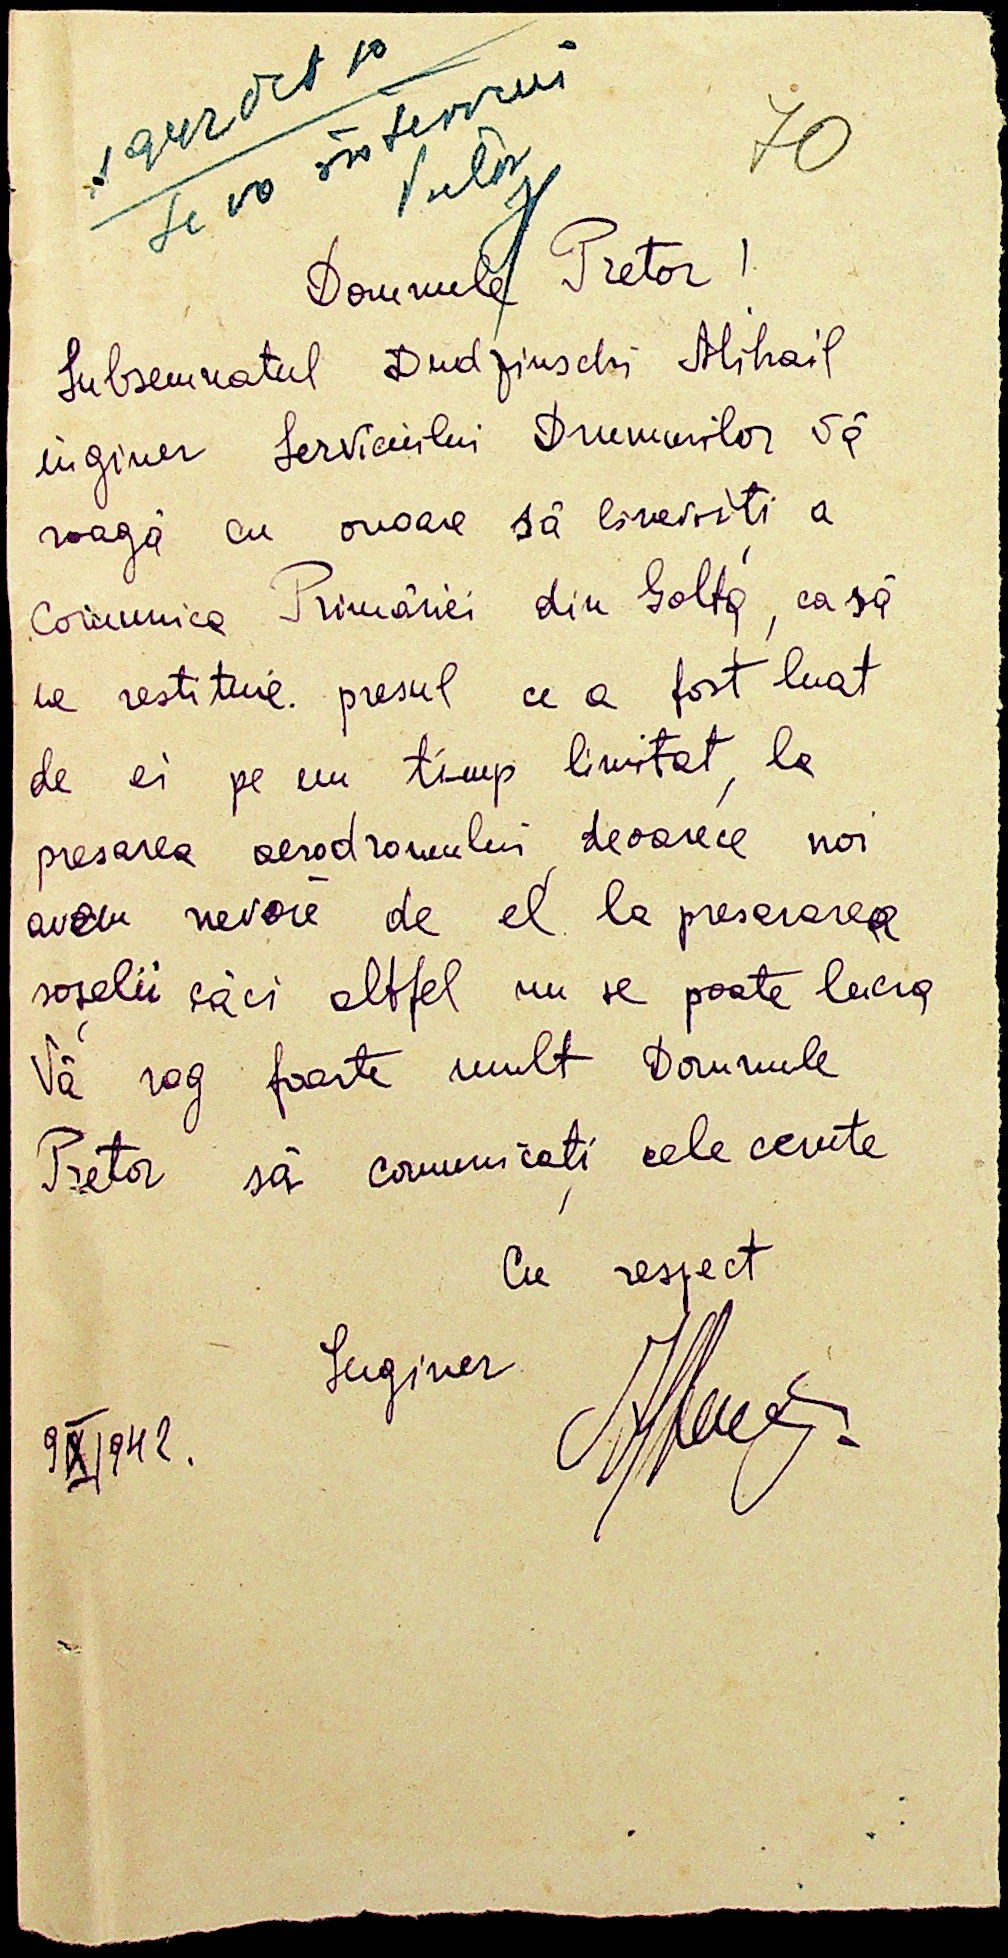 Se va interveni
70
Domnule Pretor!
Subsemnatul Dudzinschi Mihail
inginer Serviciului Drumurilor Vă
roagă cu onoare să binevoiți a
Comunica Primăriei din Golta, ca să
ne restituie presul ce a fost luat
de ei pe un timp limitat, la
presarea aerodromului, deoarece noi
avem nevoie de el la presararea
șoselii căci altfel nu se poate lucra
Vă rog foarte mult Domnule
Pretor să comunicați cele cerute
Cu respect
Inginer
9 XI 1942.